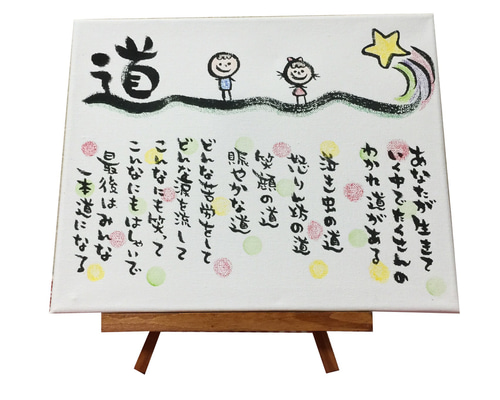 道
あなたが生きて
いく中でたくさんの
わかれ道がある
泣き虫の道
怒りん坊の道
笑顔の道
賑やかな道
どんな苦労をして
どんな涙を流して
こんなにも笑って
こんなにもはしゃいで
最後はみんな
一本道になる